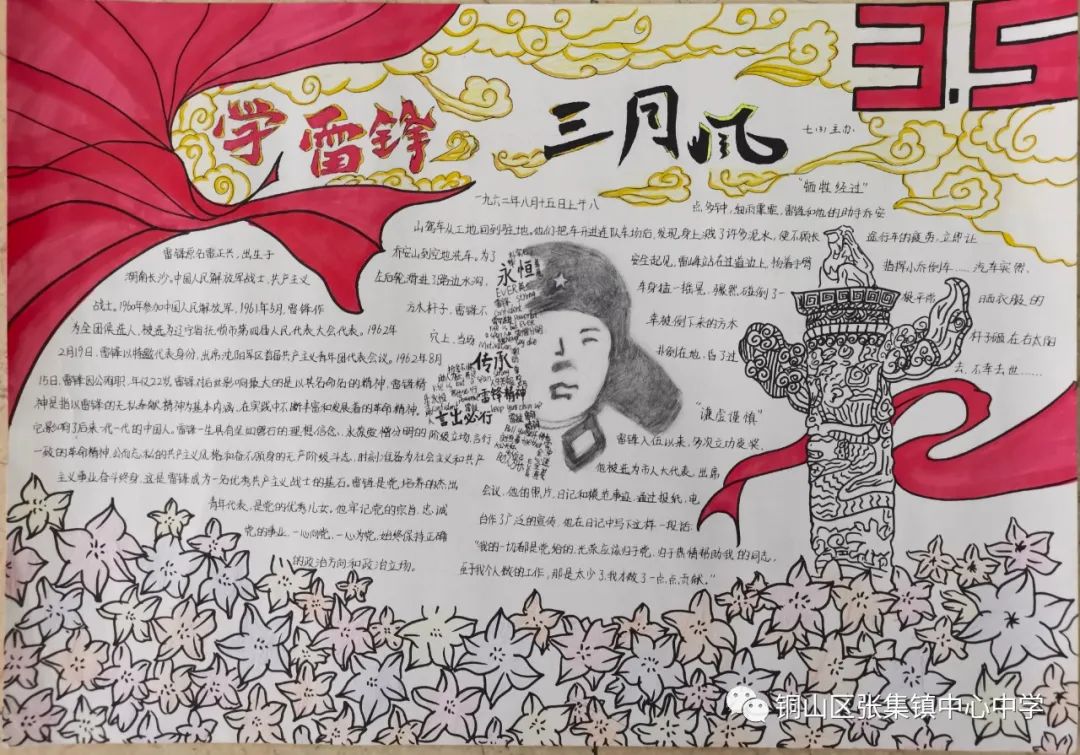 3.5
学雷锋 三月风
七(3)主办
雷锋原名雷正兴,出生于
湖南长沙,中国人民解放军战士,共产主义
战士,1960年参加中国人民解放军,1961年5月,雷锋作
为全团候选人,被选为辽宁省抚顺市第四届人民代表大会代表。1962年
2月19日,雷锋以特邀代表身份,出席沈阳军区首届共产主义青年团代表会议。1962年8月
15日,雷锋因公殉职,年仅22岁,雷锋对后世影响最大的是以其名命名的精神,雷锋精
神是指以雷锋的无私奉献精神为基本内涵,在实践中不断丰富和发展着的革命精神,
它影响了后来一代一代的中国人。雷锋一生具有坚如磐石的理想信念,永葆爱憎分明的阶级立场,言行
一致的革命精神,公而忘私的共产主义风格和奋不顾身的无产阶级斗志,时刻准备为社会主义和共产
主义事业奋斗终身,这是雷锋成为一名优秀共产主义战士的基石,雷锋是党培养的杰出
青年代表,是党的优秀儿女,他牢记党的宗旨,忠诚
党的事业,一心向党,一心为党,始终保持正确
的政治方向和政治立场。
“牺牲经过”
一九六二年八月十五日上午八
点多钟,细雨霏霏,雷锋和他的助手乔安
山驾车从工地回到驻地,他们把车开进连队车场后,发现身上溅了许多泥水,便不顾长
途行车的疲劳,立即让
乔安山到空地洗车,为了
安全起见,雷锋站在过道边上,扬着手臂
指挥小乔倒车……汽车突然
左后轮滑进了路边水沟,
车身猛一摇晃,骤然碰倒了一
根平常
晒衣服的
方木杆子,雷锋不
幸被倒下来的方木
杆子砸在右太阳
穴上,当场
扑倒在地,昏了过
去,不幸去世……
永恒
EVER
传承
雷锋精神
言出必行
“谦虚谨慎”
雷锋入伍以来,多次立功受奖,
他被选为市人大代表,出席
会议,他的照片,日记和模范事迹,通过报纸,电
台作了广泛的宣传,他在日记中写下这样一段话:
“我的一切都是党给的,光荣应该归于党,归于热情帮助我的同志,
至于我个人做的工作,那是太少了,我才做了一点点贡献。”
铜山区张集镇中心中学